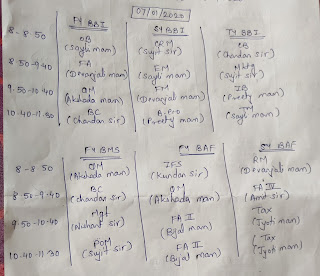 07/01/2020
FY BBI SY BBI TY BBI
8-8.50 OB (Sayli mam) CRM (Sujit sir) CB (Chandan sir)
8.50-9.40 FA (Devanjali mam) EM (Sayli mam) Mktg (Sujit sir)
9.50-10.40 QM (Akshada mam) FM (Devanjali mam) IB (Preety mam)
10.40-11.30 BC (Chandan sir) (Preety mam) TM (Sayli mam)
FY BMS FY BAF SY BAF
8-8.50 QM (Akshada mam) IFS (Kundan sir) RM (Devanjali mam)
8.50-9.40 BC (chandan sir) QM (Akshada mam) FA IV (Amit sir)
9.50-10.40 Mgt (Nishant sir) FA II (Bijal mam) Tax (Jyoti mam)
10.40-11.30 POM (Sujit sir) FA II (Bijal mam) Tax (Jyoti mam)